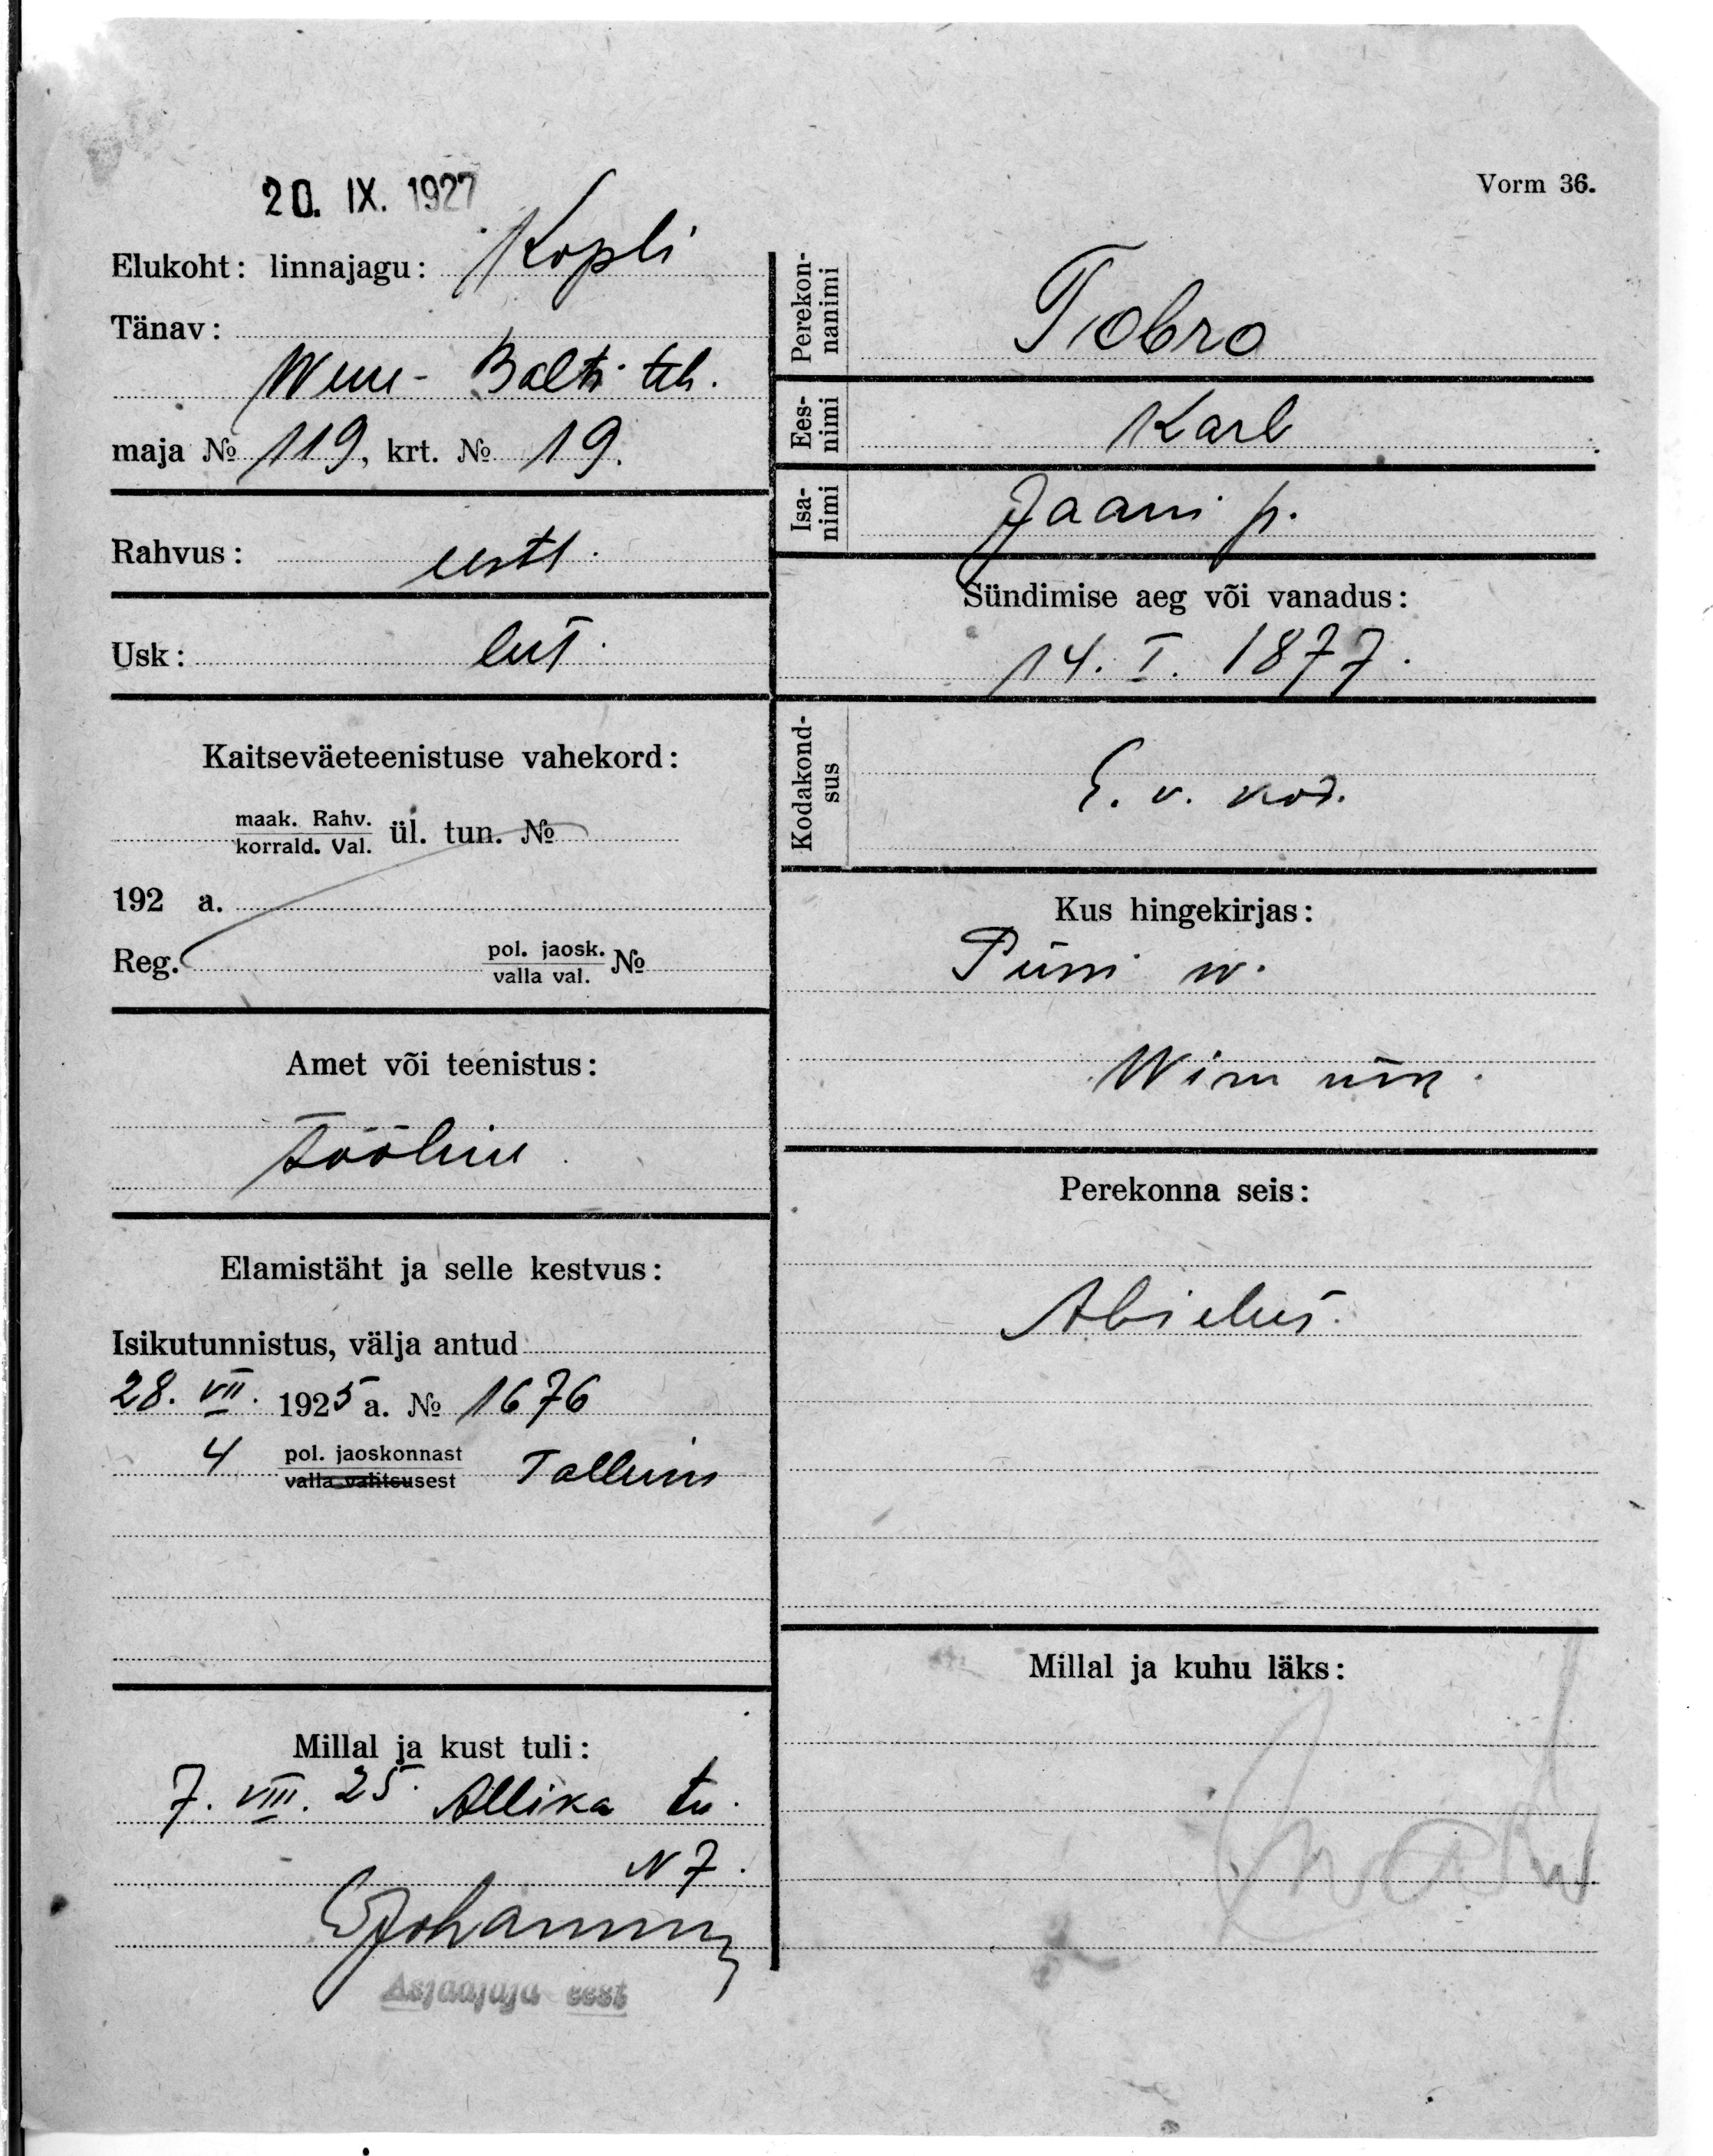 20. IX. 1927
Vorm 36.
Elukoht: linnajagu: Kopli
Tänav:
Wene-Balti teh.
maja № 119, krt. № 19.
Rahvus: eestl.
Usk: lut.
Kaitseväeteenistuse vahekord:
maak. Rahv.
korrald. Val. ül. tun. №
192 a.
Reg. pol. jaosk. №
valla val.
Amet või teenistus:
Tööline
Elamistäht ja selle kestvus:
Isikutunnistus, välja antud
28. VII. 1925 a. № 1676
4 pol. jaoskonnast Tallinnas
valla valitsusest
Millal ja kust tuli:
7. VIII. 25. Allika tn.
N 7.
Asjaajaja eest
Perekon-
nanimi
Tobro
Ees-
nimi
Karl
Isa-
nimi
Jaani p.
Sündimise aeg või vanadus:
14. I. 1877.
Kodakond-
sus
E. v. kod.
Kus hingekirjas:
Püssi w.
Wiru m.
Perekonna seis:
Abielus.
Millal ja kuhu läks: